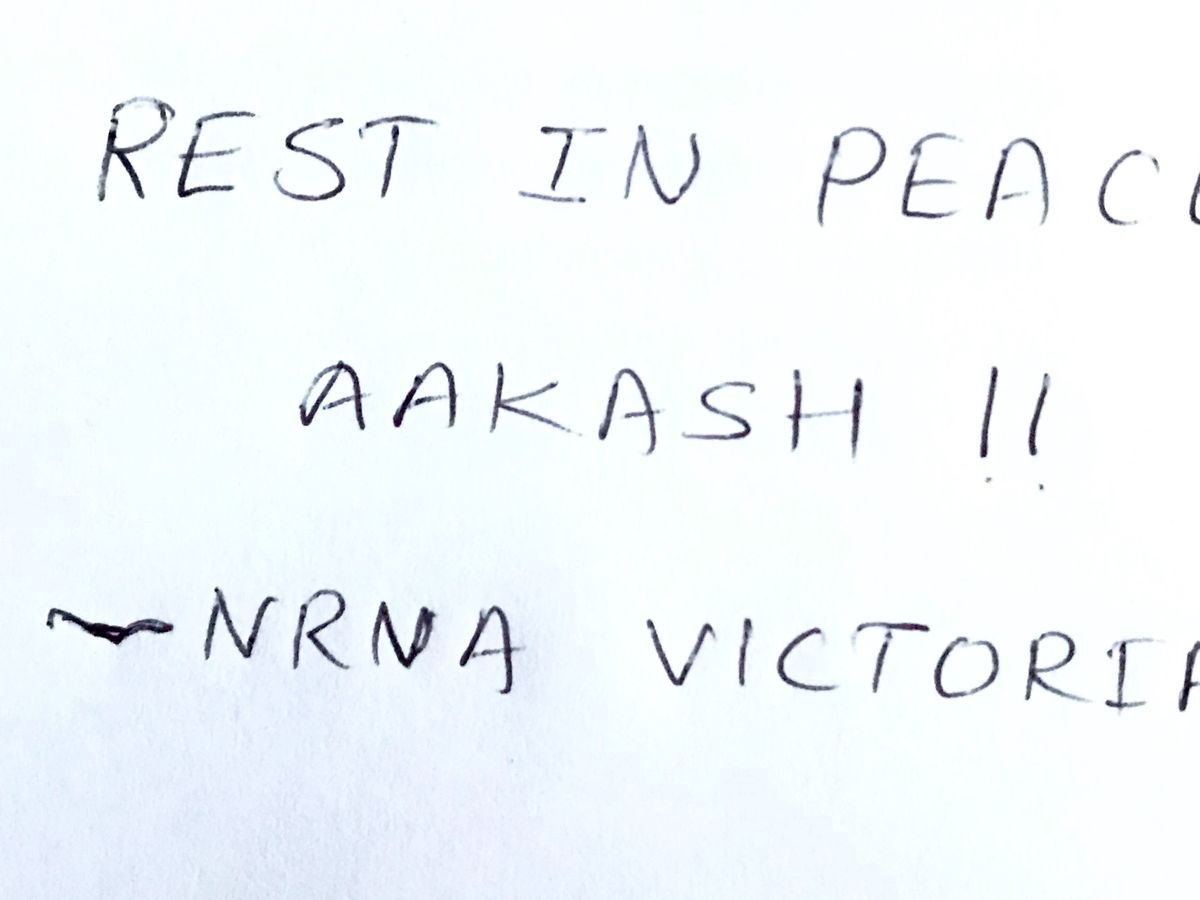 REST IN PEACE
AAKASH !!
~NRNA VICTORIA